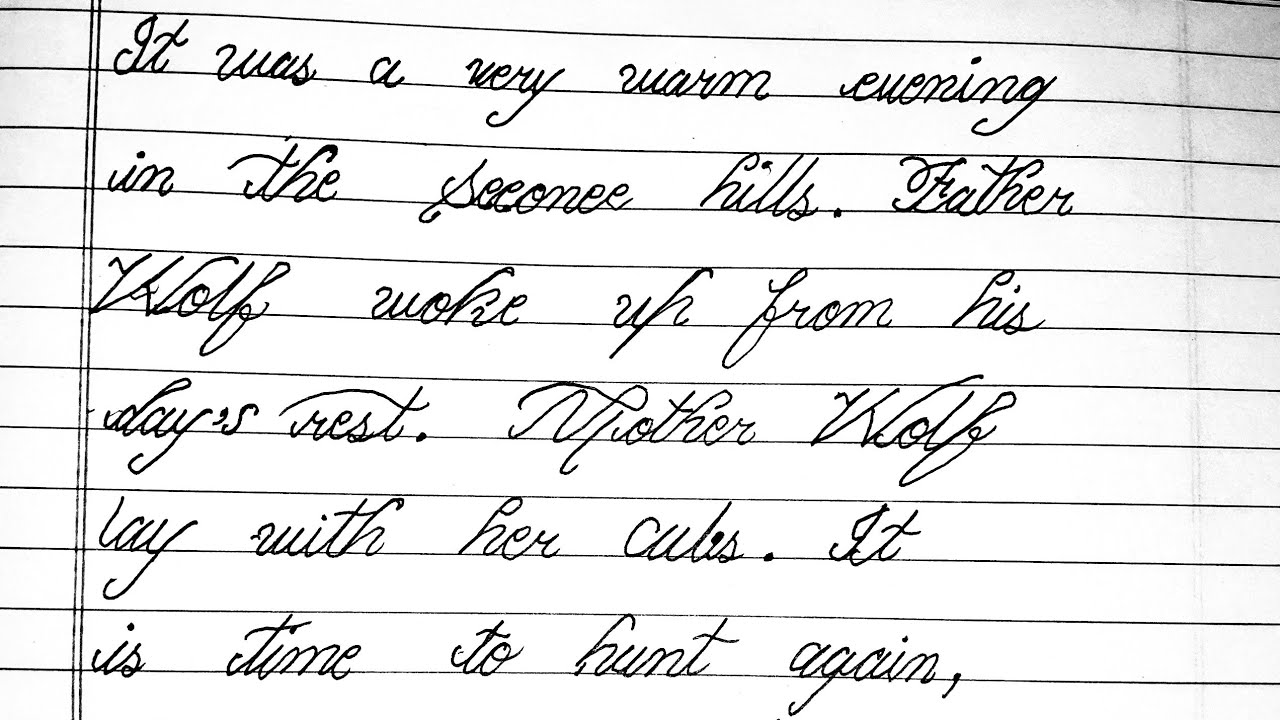 It was a very warm evening
in the Seeonee hills. Father
Wolf woke up from his
day's rest. Mother Wolf
lay with her cubs. It
is time to hunt again,